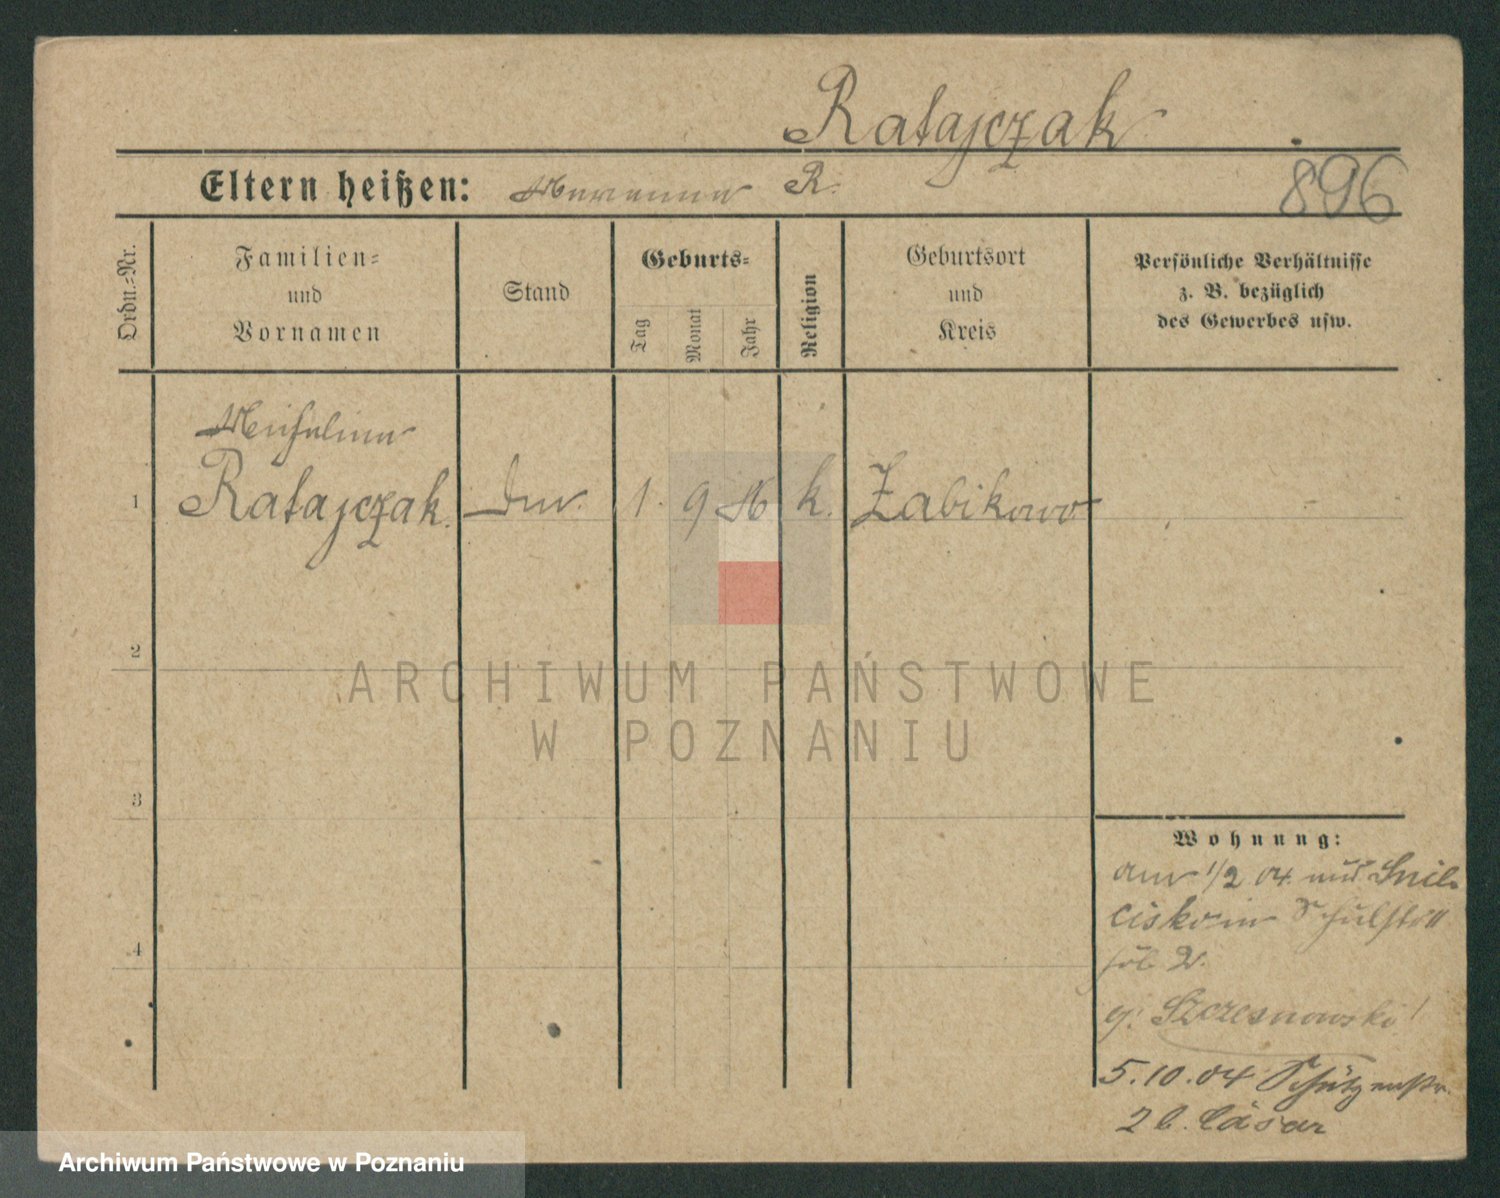 Ratajczak
Eltern heißen: Marianna R.
896
Ordn.-Nr.
Familien-
und
Vornamen
Stand
Geburts-
Tag
Monat
Jahr
Religion
Geburtsort
und
Kreis
Persönliche Verhältnisse
z. B. bezüglich
des Gewerbes usw.
1
Michalina
Ratajczak.
1. 9 86 k. Żabikowo
2
3
4
Wohnung:
1/2 04.
2.
Szczesnowski
5.10.04 Schützenstr.
2b. Cäsar
ARCHIWUM PAŃSTWOWE
W POZNANIU
Archiwum Państwowe w Poznaniu